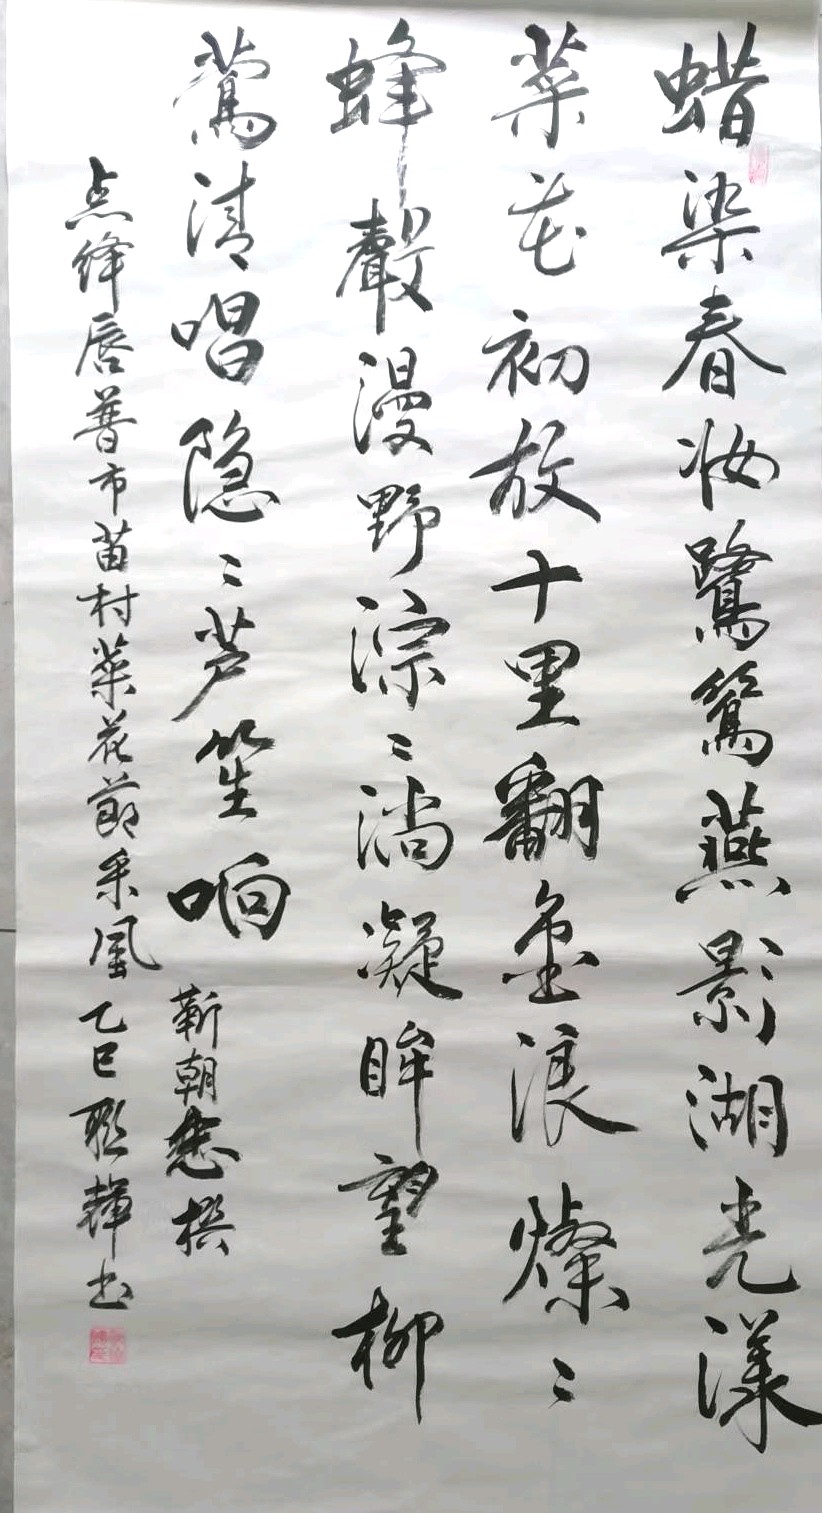 蜡染春妆鹭篶燕影湖光漾
菜花初放十里翻金浪灿〻
蜂聲漫野淙〻淌凝眸望柳
莺清唱隐〻芦笙响
靳朝忠撰
点绛唇普市苗村菜花節采风乙巳聪輝书